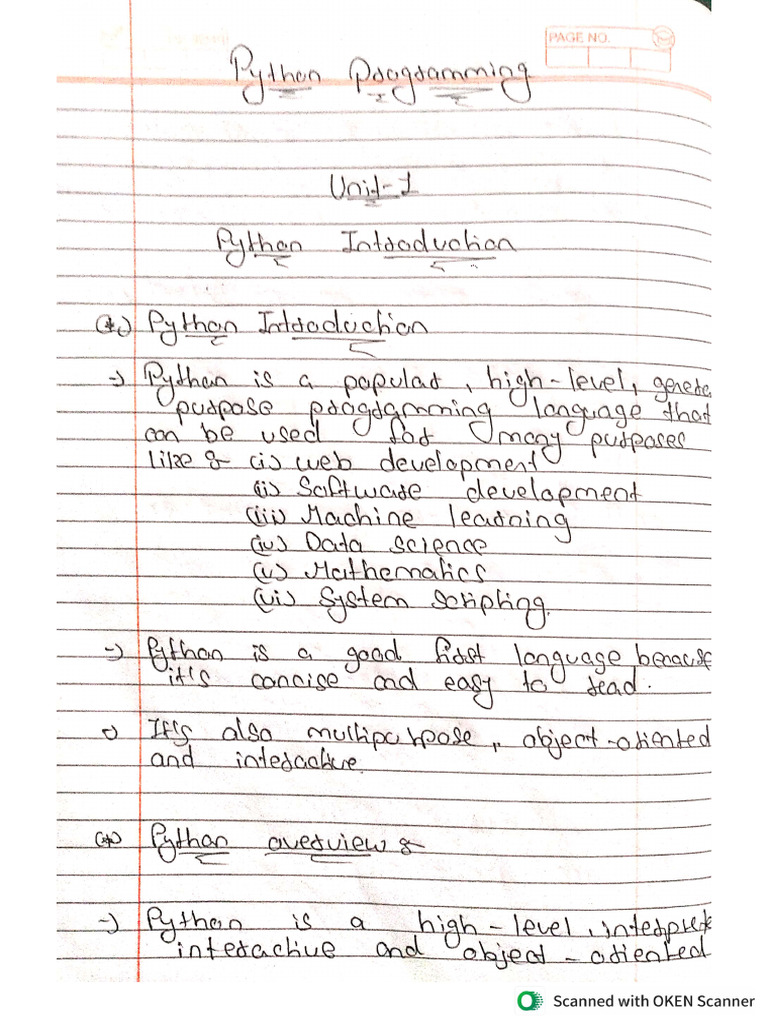 PAGE NO.
Python Programming
Unit-1
Python Introduction
(*) Python Introduction
→ Python is a popular, high-level, genera
purpose programming language that
can be used for many purposes
like : (i) web development
(ii) Software development
(iii) Machine learning
(iv) Data science
(v) Mathematics
(vi) System scripting.
→ Python is a good first language because
it's concise and easy to read.
→ It's also multipurpose, object-oriented
and interactive.
(*) Python overview :
→ Python is a high-level, interpret
interactive and object-oriented
Scanned with OKEN Scanner